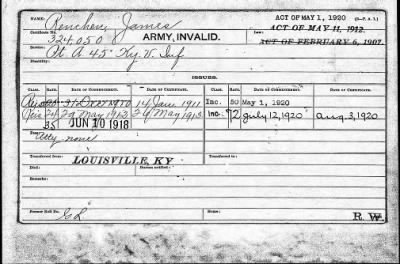 NAME: Rencher, James ACT OF MAY 1, 1920
Certificate No. 324,050 ARMY, INVALID. Law: ACT OF MAY 11, 1912.
ACT OF FEBRUARY 6, 1907.
Pt. A 45" Ky. V. Inf
Disability:
ISSUES.
CLASS. RATE. DATE OF COMMENCEMENT. DATE OF CERTIFICATE. CLASS. RATE. DATE OF COMMENCEMENT. DATE OF CERTIFICATE.
31 Dec 1910 14 June 1911 Inc. 50 May 1, 1920
24 29 May 1913 26 May 1913 Inc. 72 July 12, 1920 Aug. 3, 1920
35 JUN 10 1918
Atty none
Transferred from: LOUISVILLE, KY Transferred to:
Died: Bureau notified:
Remarks:
Former Roll No. Home:
R. W.